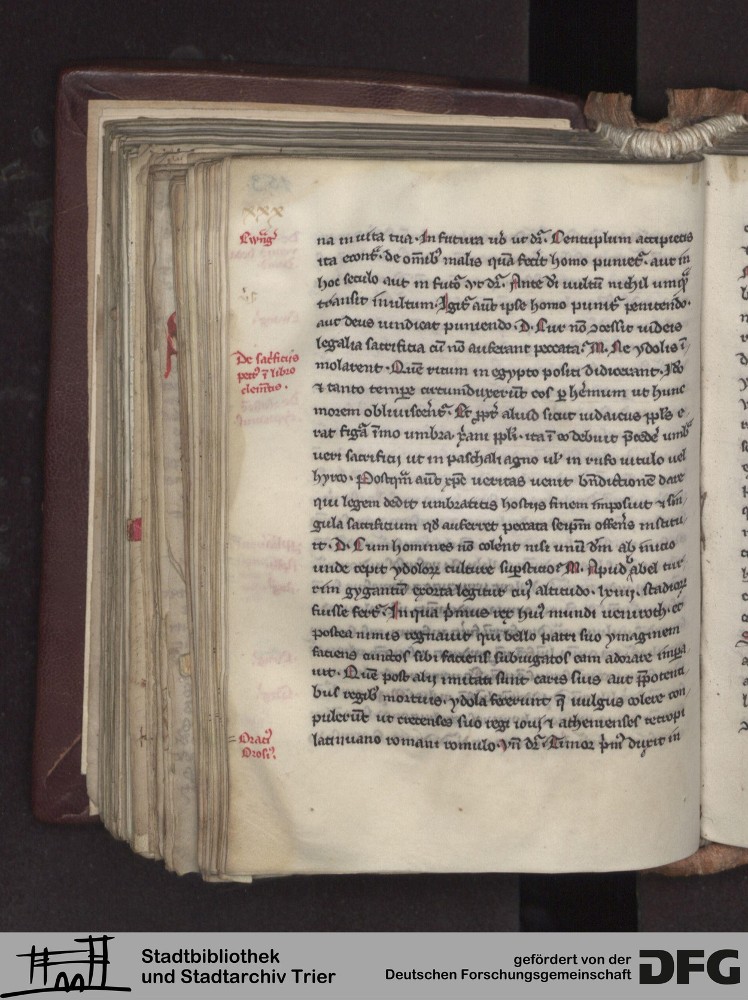 xxx
na in vita tua. In futura v̊o ut dr̄. Centuplum accipietis
ita econt̄. de om̄ib; malis qua fecit homo puniet̄. aut in
hoc seculo aut in fut̄o ut dr̄. Ante dī uultū nichil umq̄
transit inultum. Igit̄ aut̄ ipse homo punit̄ penitendo.
aut deus uindicat puniendo. D. Cur nō ꝯcessit iudeis
legalia sacrificia cū nō auferant peccata. M. Ne ydolis ī
molarent. Quē ritum in egypto positi didicerant. Id̊o
⁊ tanto tempe circumduxerūt eos p h̓emum ut hunc
morem obliuiscerēt. Et ppt̄ aliud sicut iudaicus ppl̄s e
rat figā īmo umbra xp̄ani ppl̄i. ita ⁊ eo debuit p̄cede umb̄
ueri sacrificij ut in paschali agno ul̄ in rufo uitulo uel
hyrco. Postq̄m aut̄ xp̄c ueritas uenit bn̄dictionē dare
qui legem dedit umbraticis hostijs finem imposuit ⁊ sin
gula sacrificium qd̄ auferret peccata seip̄m offerēs institu
it. D. Cum homines nō colerēt nisi unū dm̄ ab inicio
unde cepit ydoloꝝ culture supsticio? M. Apud babel tur
rim gygantū exorta legitur cuꝰ altitudo. lxiiii. stadioꝝ
fuisse fert̄. In qua p̄mus rex huiꝰ mundi nemroth. et
postea nimis regnauit qui bello patri suo ymaginem
faciens cunctos sibi faciens subiugatos eam adorare impa
uit. Quē post alij imitati sunt caris suis aut p̄potenti
bus regib; mortuis. ydola fecerunt q̄ uulgus colere con
pulerūt ut cretenses suo regi ioui ⁊ athenienses cecropi
latij iano romani romulo. Vn̄ dr̄. Timor p̄mꝰ duxit in
De sac̄ficijs
pet̄ꝰ ī libro
clemētis.
Orac̄ꝰ
Orosiꝰ.
Stadtbibliothek
und Stadtarchiv Trier
gefördert von der
Deutschen Forschungsgemeinschaft
DFG